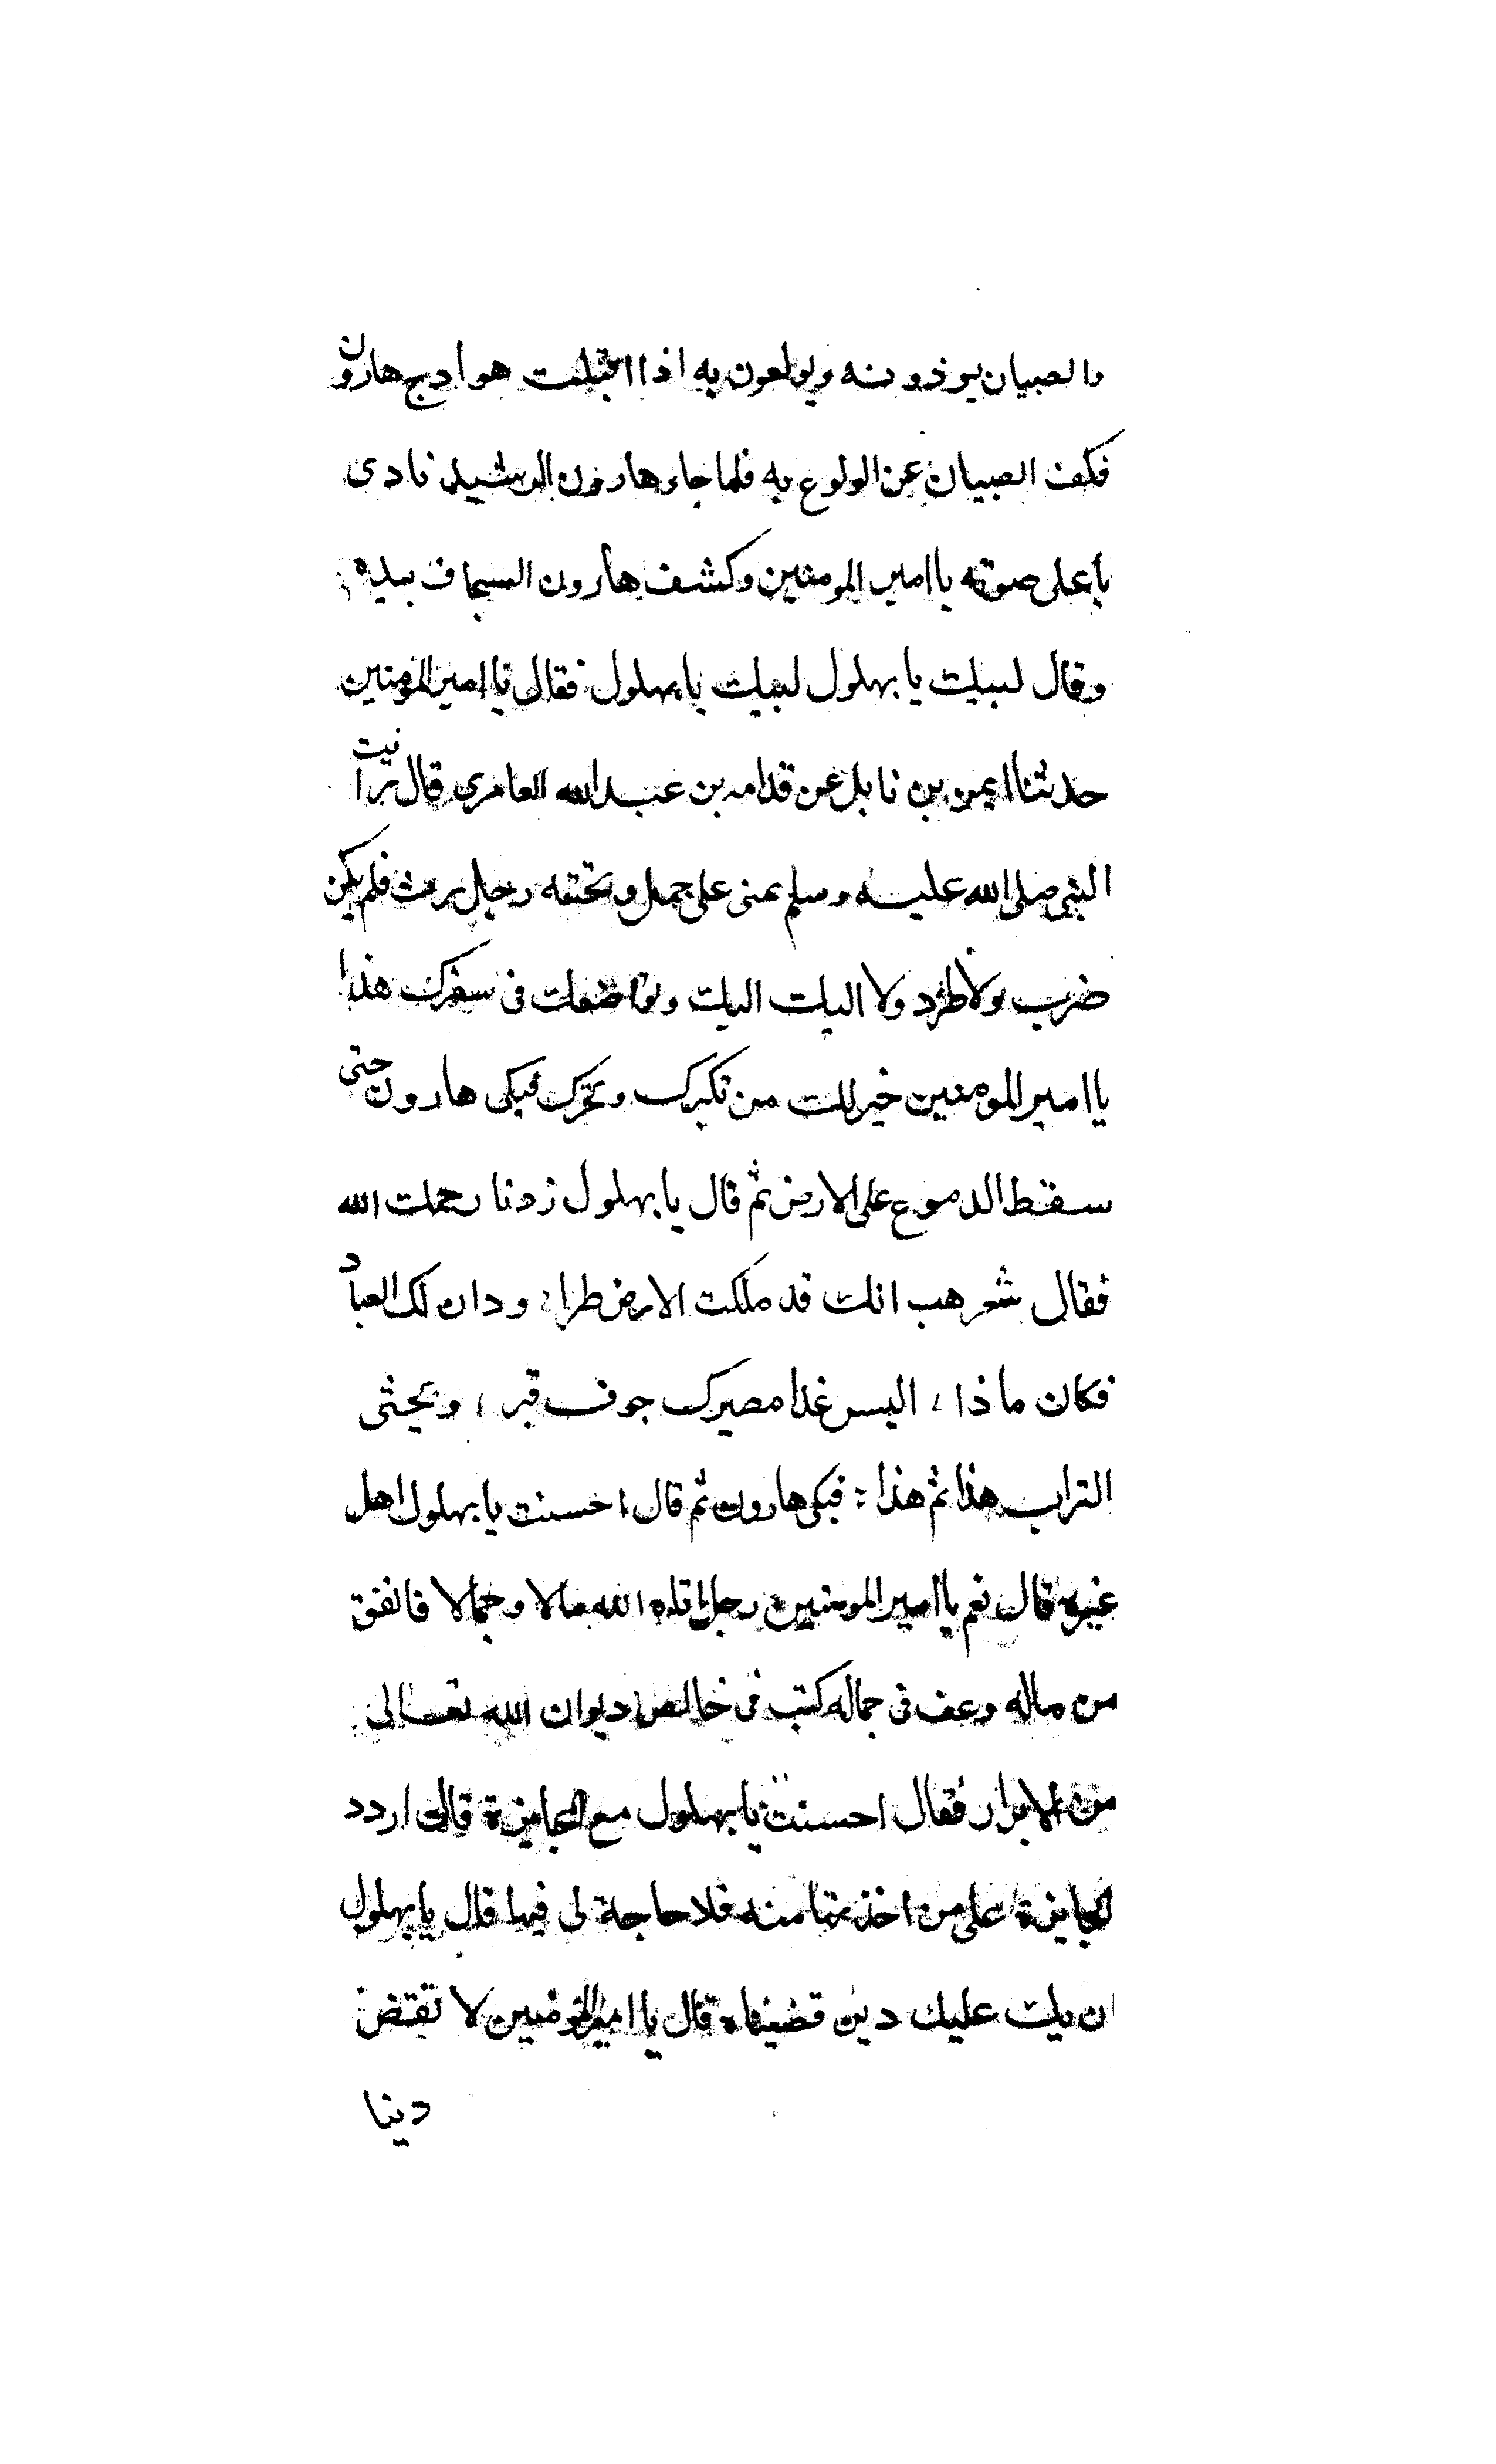 والصبيان يوذونه ويولعون به اذا اقبلت هوادج هارون
فكف الصبيان عن الولوع به فلما جاء هارون الرشيد نادى
باعلى صوته يا امير المومنين وكشف هارون السجاف بيده
وقال لبيك يا بهلول لبيك يا بهلول فقال يا امير المومنين
حدثنا ايمن بن نابل عن قدامه بن عبد الله العامرى قال رايت
النبى صلى الله عليه وسلم بمنى على جمل وتحته رحل رث فلم يكن
ضرب ولا طرد ولا اليك اليك وتواضعك فى سفرك هذا
يا امير المومنين خير لك من تكبرك وتجبرك فبكى هارون حتى
سقط الدموع على الارض ثم قال يا بهلول زدنا رحمك الله
فقال شعر هب انك قد ملكت الارض طرا ودان لك العباد
فكان ماذا ، اليس غدا مصيرك جوف قبر ، ويحثى
التراب هذا ثم هذا : فبكى هارون ثم قال احسنت يا بهلول اهل
غيره قال نعم يا امير المومنين رجل اتاه الله مالا وجمالا فانفق
من ماله وعف فى جماله كتب فى خالص ديوان الله تعالى
من الابرار فقال احسنت يا بهلول مع الجايزة قال اردد
الجايزة على من اخذتها منه فلا حاجة لى فيها قال يا بهلول
ان يك عليك دين قضيناه قال يا امير المومنين لا تقتض
دينا